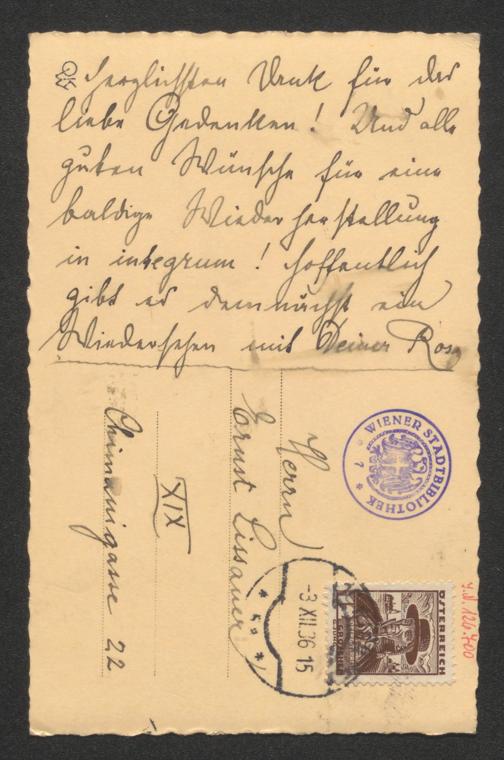 Herzlichsten Dank für das
liebe Gedenken! Und alle
guten Wünsche für eine
baldige Wiederherstellung
in integrum! Hoffentlich
gibt es demnächst ein
Wiedersehen mit Deiner Rosa
Herrn
Ernst Lissauer
XIX
Chimanigasse 22
WIENER STADTBIBLIOTHEK
7
-3.XII.36 15
ÖSTERREICH
GROSCHEN